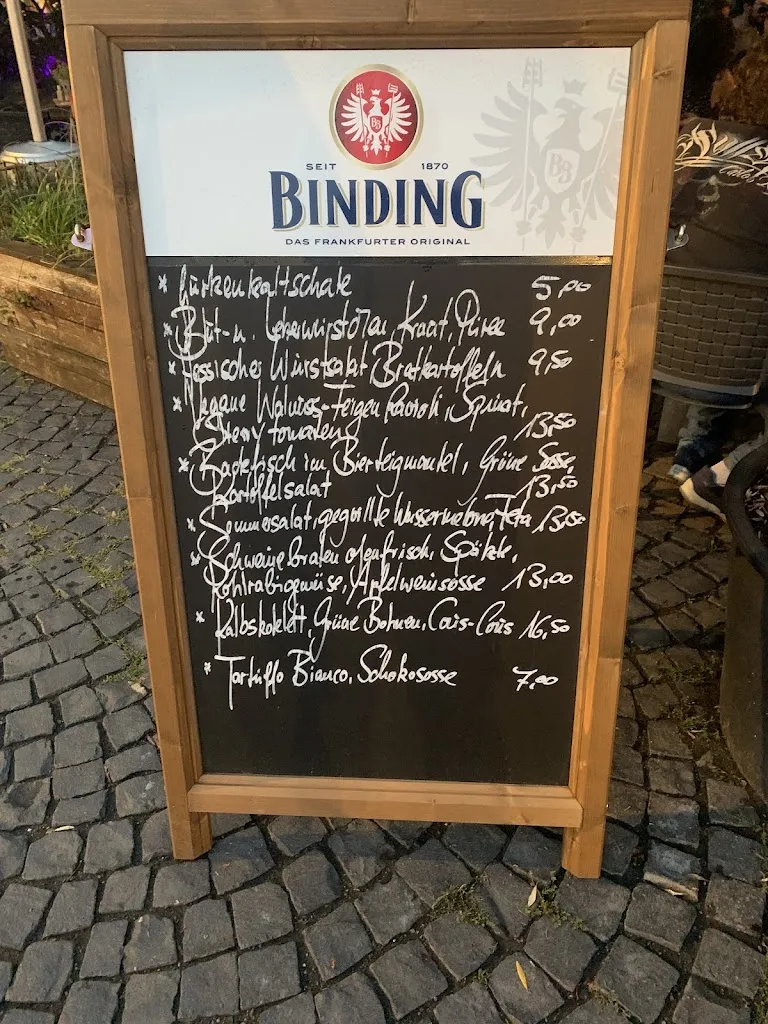 SEIT 1870
BINDING
DAS FRANKFURTER ORIGINAL
* Gurkenkaltschale 5,00
* Blut- u. Leberwürstchen, Kraut, Püree 9,00
* Hessischer Wurstsalat Bratkartoffeln 9,50
* Vegane Walnuss-Feigen Ravioli, Spinat,
Cherrytomaten 13,50
* Backfisch im Bierteigmantel, Grüne Sosse,
Kartoffelsalat 13,50
* Sommersalat, gegrillte Wassermelone, Feta 13,50
* Schweinebraten ofenfrisch, Spätzle,
Kohlrabigemüse, Apfelweinsosse 13,00
* Kalbskotelett, Grüne Bohnen, Cous-Cous 16,50
* Tartuffo Bianco, Schokososse 7,00